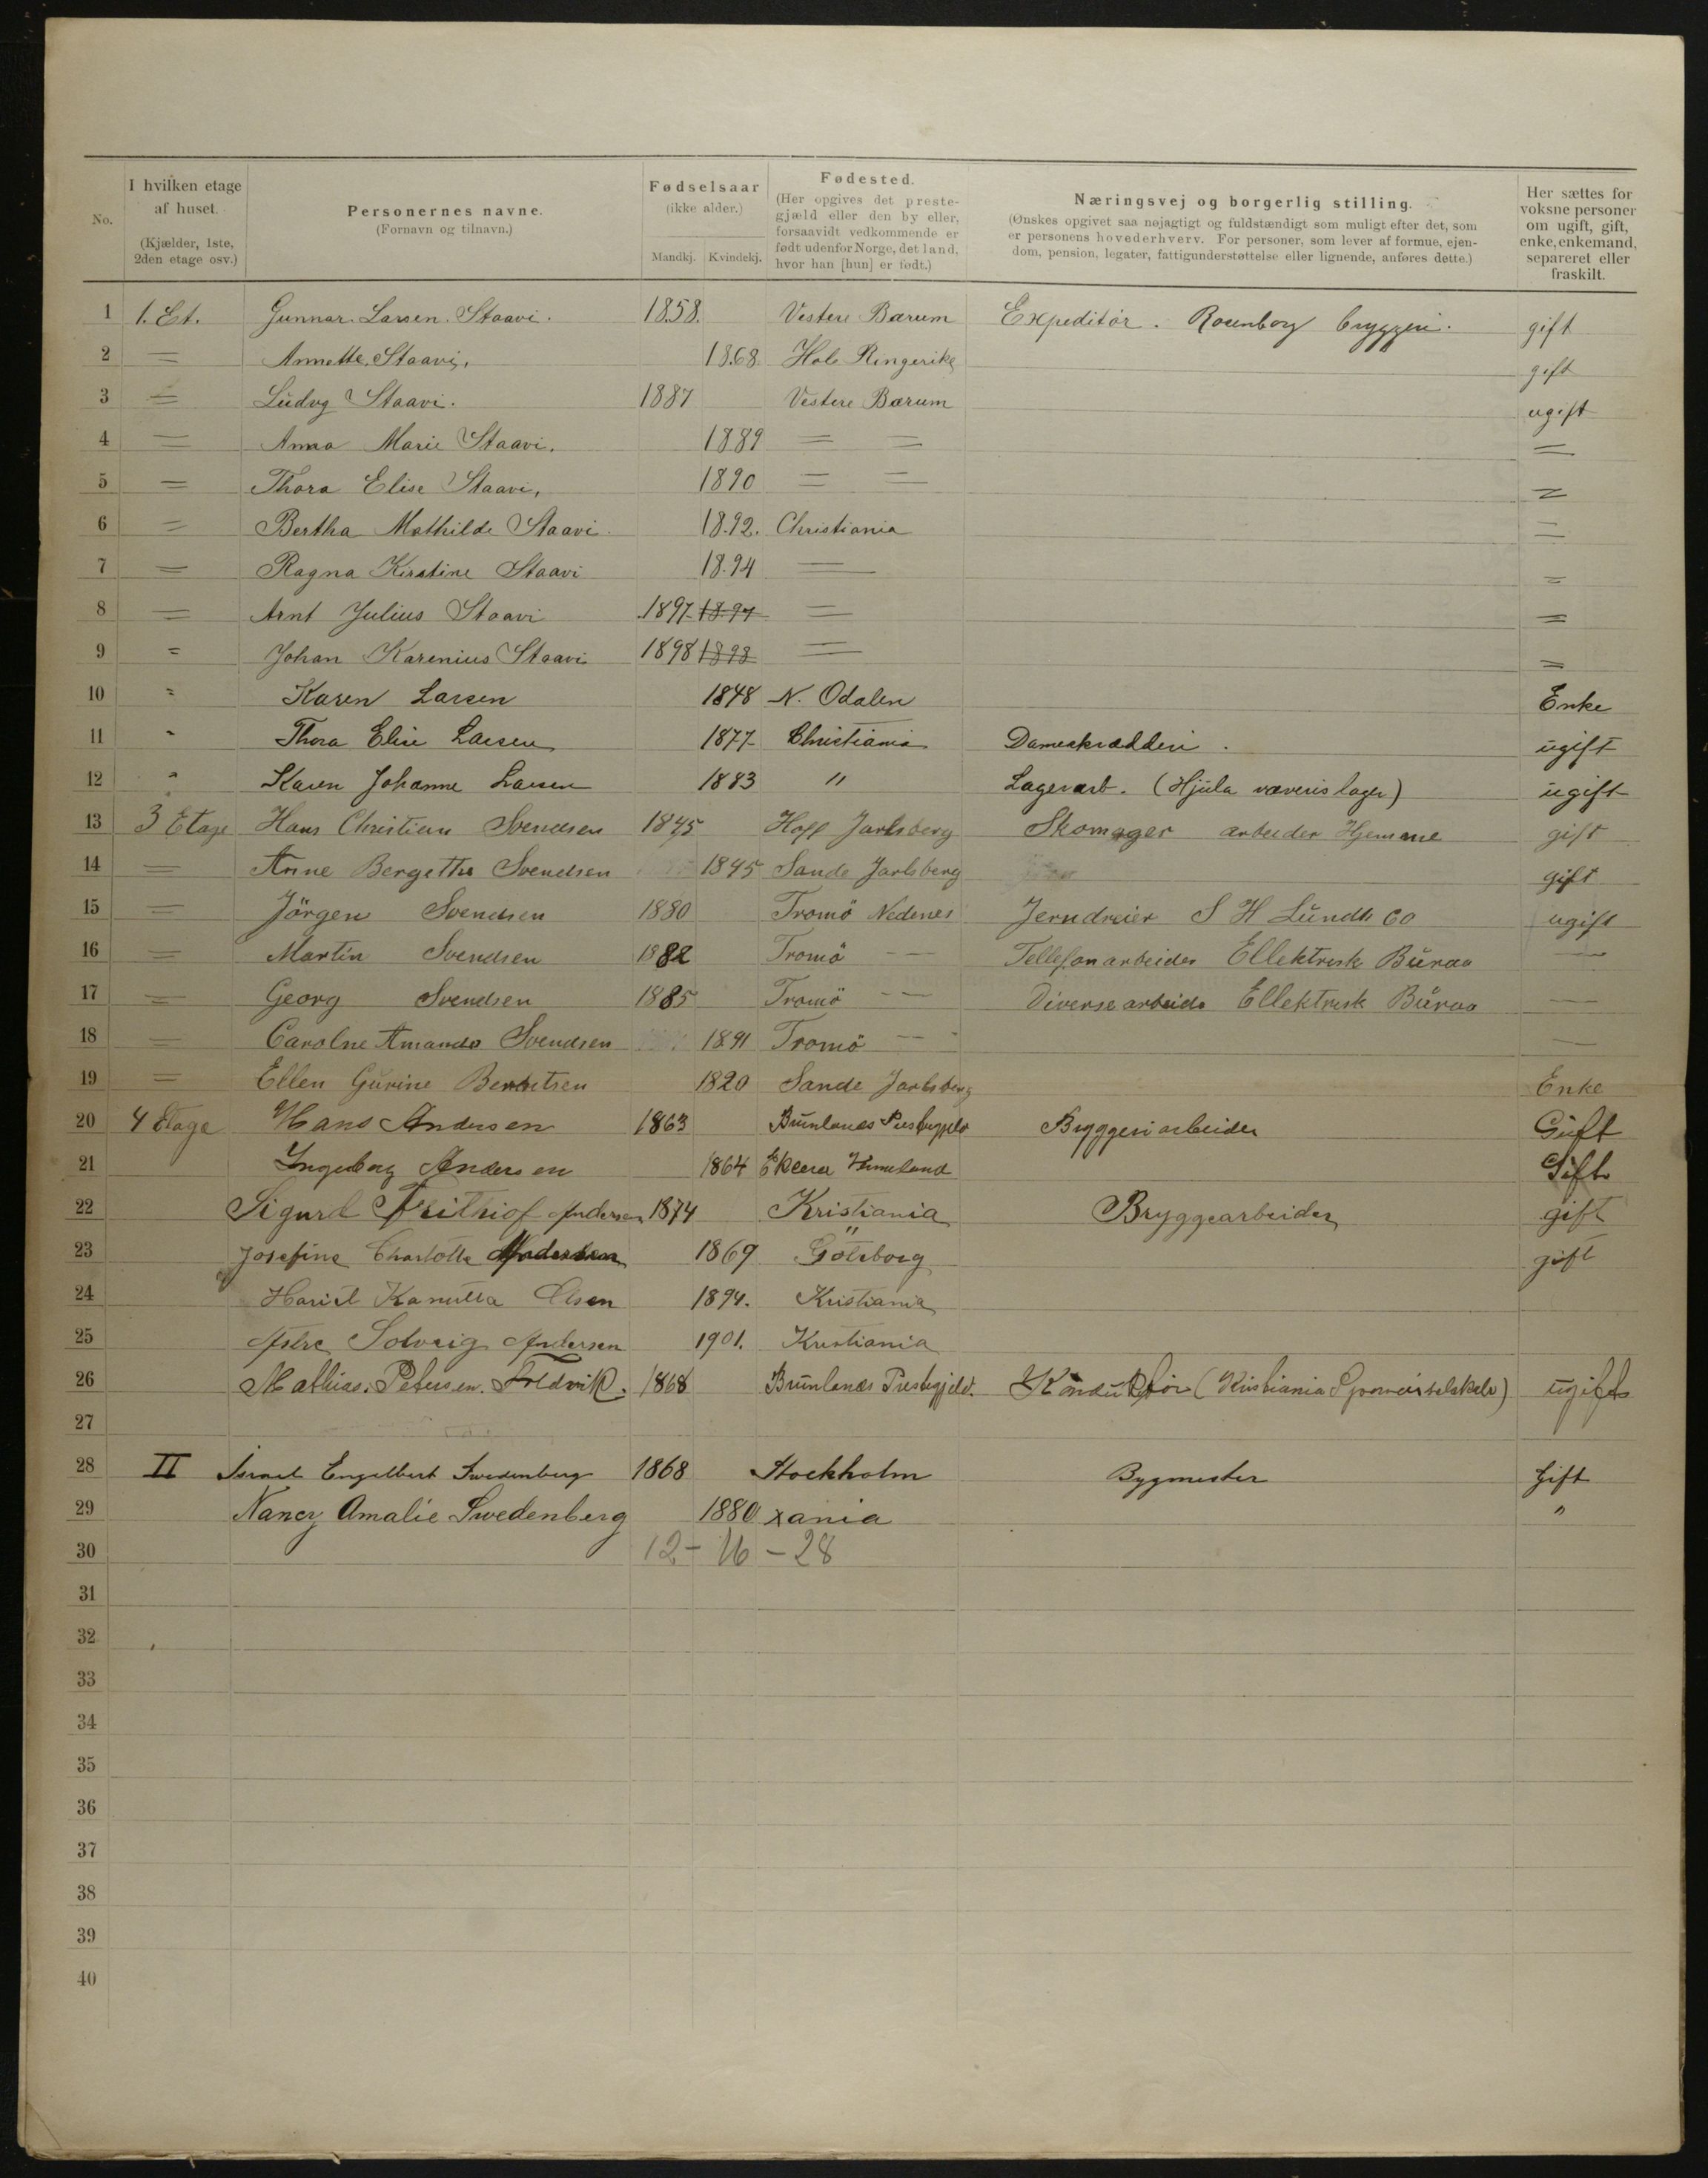 No.
I hvilken etage af huset. (Kjælder, 1ste, 2den etage osv.)
Personernes navne. (Fornavn og tilnavn.)
Fødselsaar (ikke alder.) Mandkj. Kvindekj.
Fødested. (Her opgives det prestegjæld eller den by eller, forsaavidt vedkommende er født udenfor Norge, det land, hvor han [hun] er født.)
Næringsvej og borgerlig stilling. (Ønskes opgivet saa nøjagtigt og fuldstændigt som muligt efter det, som er personens hovederhverv. For personer, som lever af formue, ejendom, pension, legater, fattigunderstøttelse eller lignende, anføres dette.)
Her sættes for voksne personer om ugift, gift, enke, enkemand, separeret eller fraskilt.
1 1. Et. Gunnar Larsen Staavi. 1858. Vestere Bærum Expeditör. Rosenborg bryggeri. gift
2 = Annette Staavi. 1868. Hole Ringerike gift
3 = Ludvg Staavi. 1887 Vestere Bærum ugift
4 = Anna Marie Staavi. 1889 = = =
5 = Thora Elise Staavi. 1890 = = =
6 = Bertha Mathilde Staavi. 1892. Christiania =
7 = Ragna Kirstine Staavi 1894 = =
8 = Arnt Julius Staavi 1897 1897 = =
9 = Johan Karenius Staavi 1898 1898 = =
10 " Karen Larsen 1848 N. Odalen Enke
11 " Thora Elise Larsen 1877 Christiania Dameskrædderi. ugift
12 " Karen Johanne Larsen 1883 " Lagerarb. (Hjula væveris lager) ugift
13 3 Etage Hans Christian Svendsen 1845 Hoff Jarlsberg Skomager arbeider Hjemme gift
14 = Anne Bergethe Svendsen 1845 Sande Jarlsberg gift
15 = Jörgen Svendsen 1880 Tromö Nedenes Jerndreier S H Lundh Co ugift
16 = Martin Svendsen 1882 Tromö — Tellefonarbeider Ellektrisk Büraa —
17 = Georg Svendsen 1885 Tromö — Diverse arbeide Ellektrisk Büraa —
18 = Carolne Amanda Svendsen 1891 Tromö — —
19 = Ellen Gurine Berntsen 1820 Sande Jarlsberg Enke
20 4 Etage Hans Andersen 1863 Brunlanes Prestegjeld Bryggeriarbeider Gift
21 Ingeborg Andersen 1864 Gift
22 Sigurd Frithiof Andersen 1874 Kristiania Bryggearbeider gift
23 Josefine Charlotte Andersen 1869 Göteborg gift
24 Olsen 1894. Kristiania
25 Solveig Andersen 1901. Kristiania
26 Mathias Petersen Foldvik. 1868 Brunlanes Prestegjeld. Konduktör (Kristiania Sporveisselskab) ugift
27
28 II Israel Engelbert Swedenberg 1868 Stockholm Bygmester Gift
29 Nancy Amalie Swedenberg 1880 Xania "
30 12 - 16 - 28
31
32
33
34
35
36
37
38
39
40